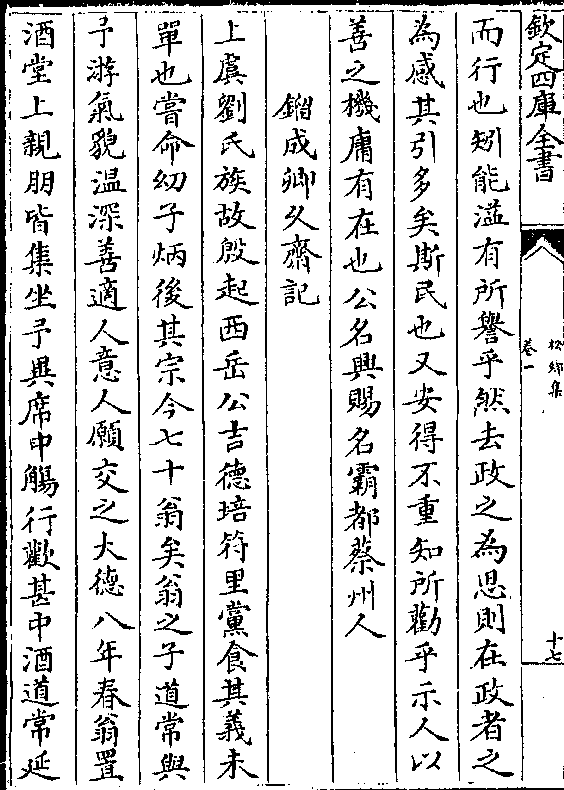 欽定四庫全書
松鄉集
卷一
十七
而行也矧能溢有所譽乎然去政之為思則在政者之
為感其引多矣斯民也又安得不重知所勸乎示人以
善之機庸有在也公名興賜名霸都蔡州人
鎦成卿久齋記
上虞劉氏族故殷起西岳公吉德培符里黨食其義未
單也嘗命幼子炳後其宗今七十翁矣翁之子道常與
予游氣貌温深善適人意人願交之大德八年春翁置
酒堂上親朋皆集坐予與席中觴行歡甚中酒道常延